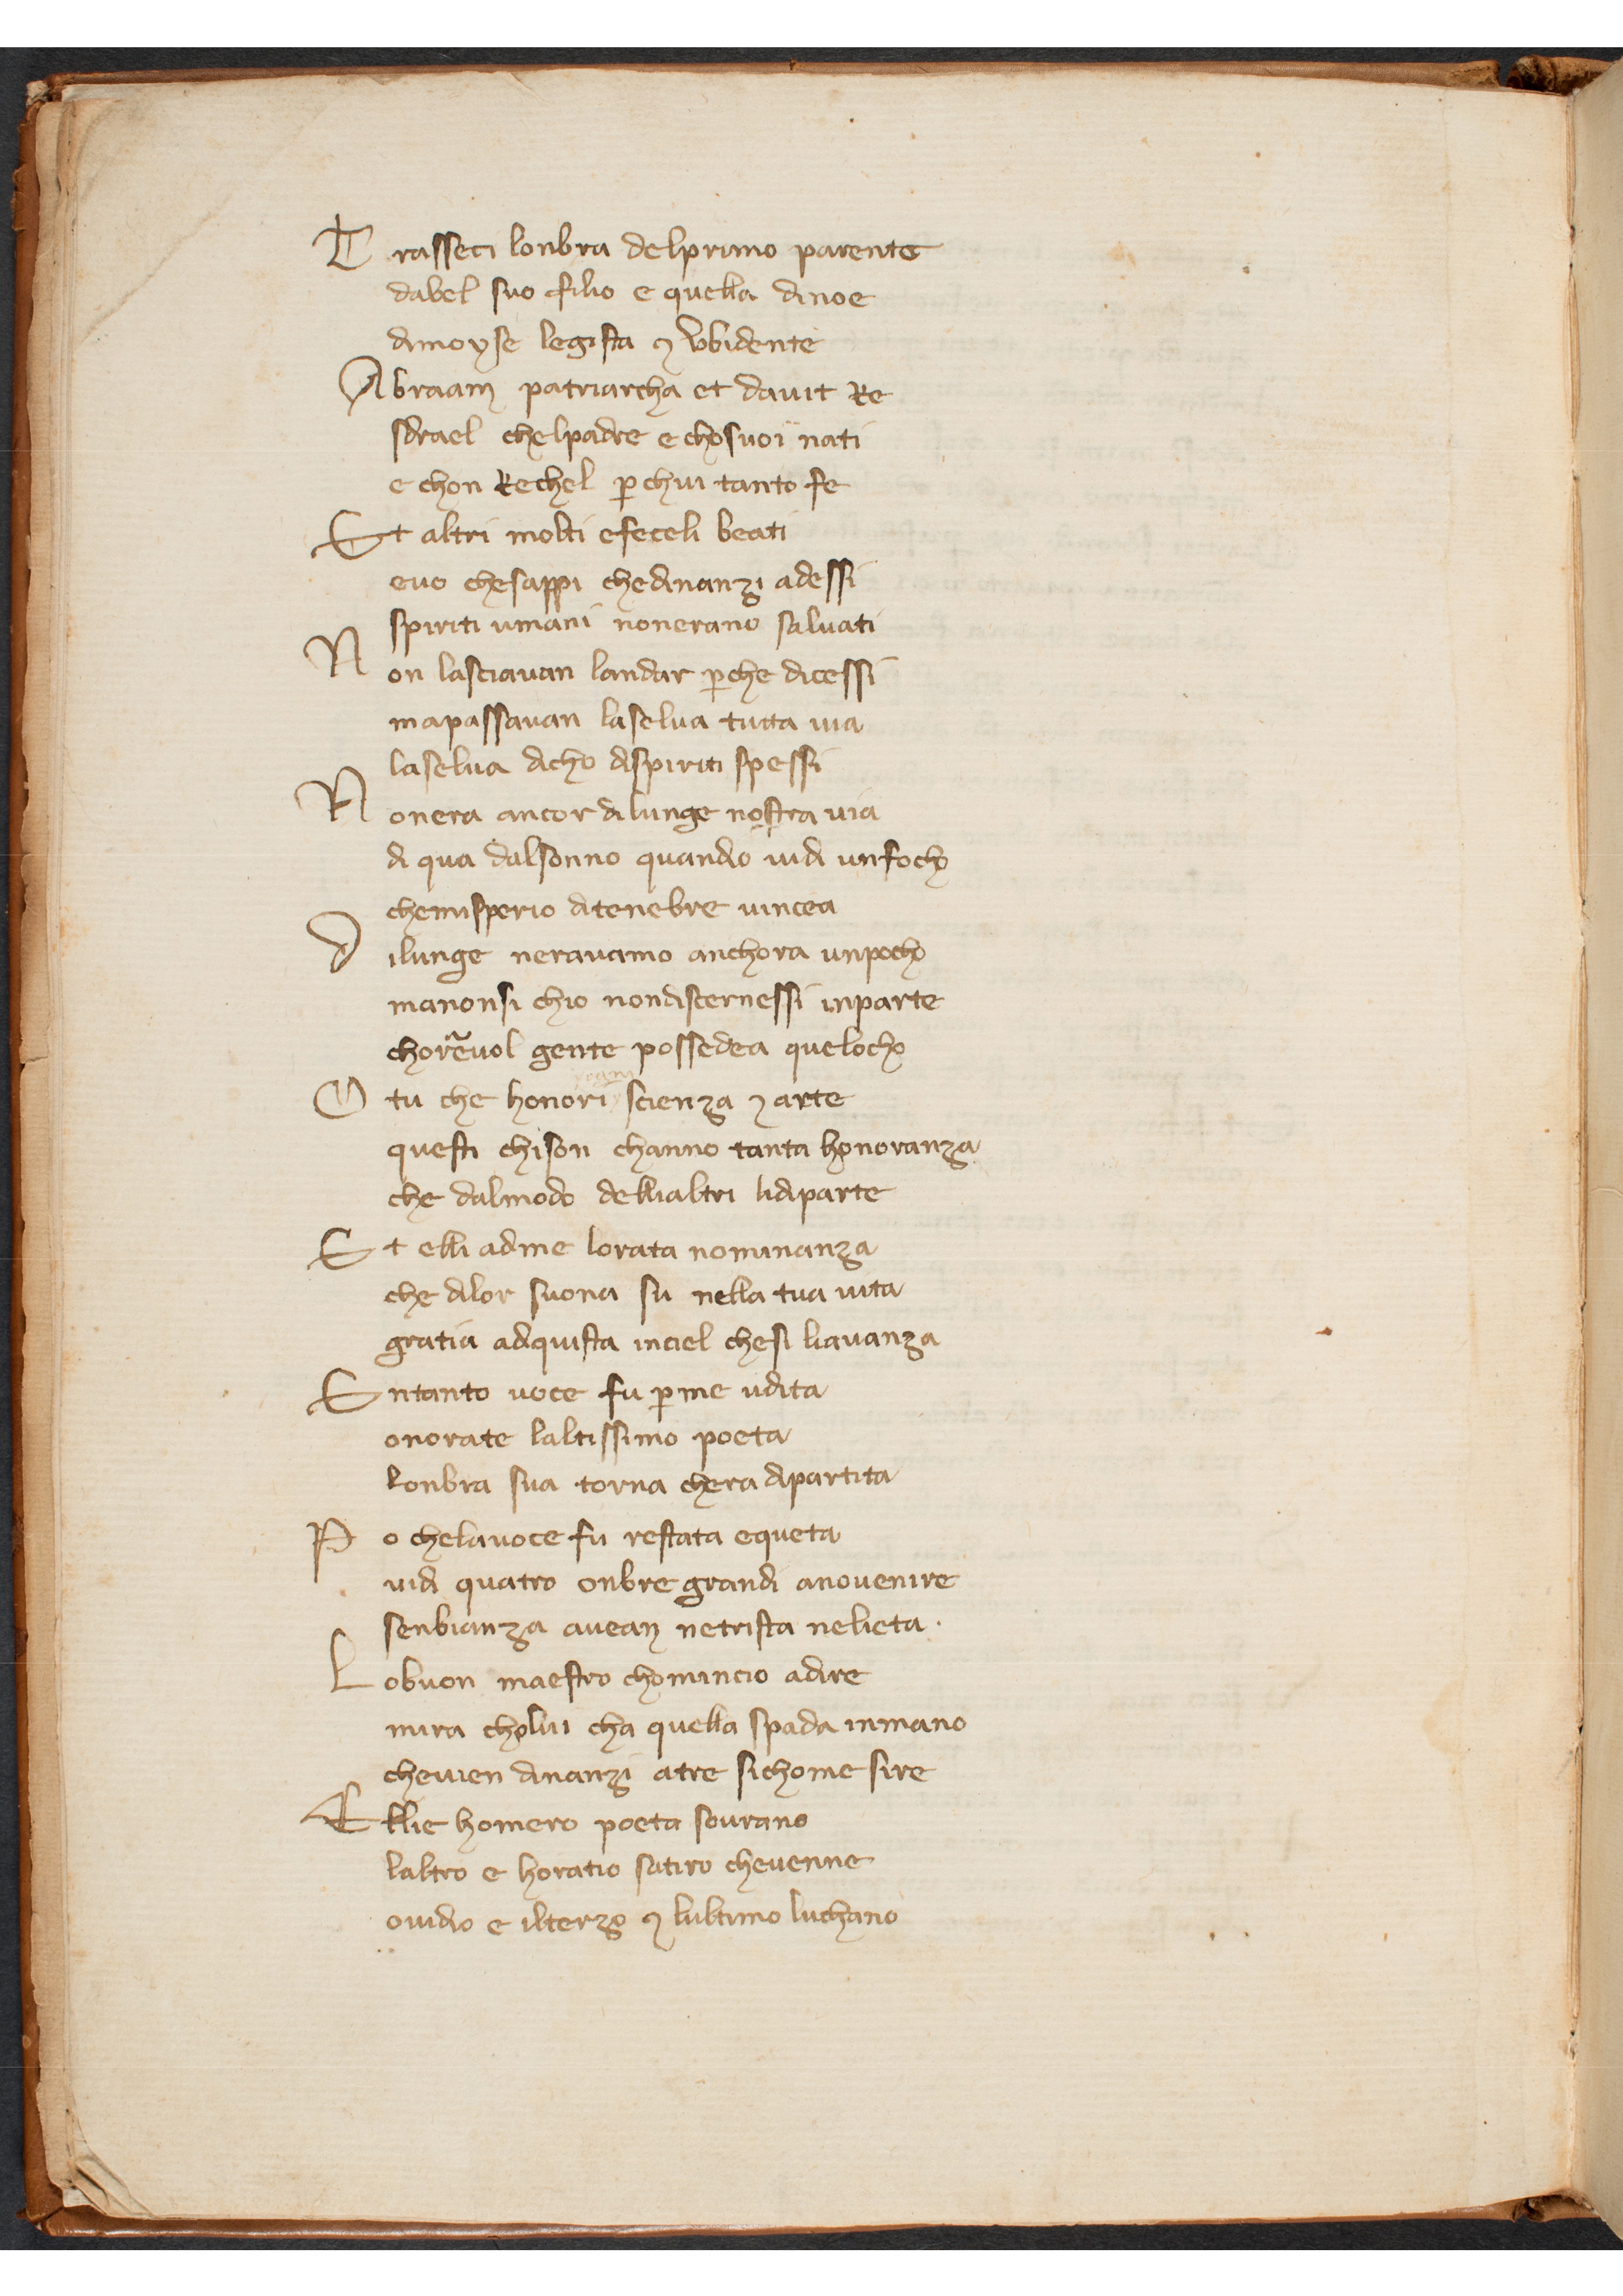 Trasseci lonbra delprimo parente
dabel suo filio e quella dinoe
dimoyse legista ⁊ vbidente
Abraam patriarcha et dauit Re
sdrael chelpadre e chosuoi nati
e chon Rechel ꝑ chui tanto fe
Et altri molti efeceli beati
euo chesappi chedinanzi adessi
spiriti umani nonerano saluati
Non lasciauan landar ꝑche dicessi
mapassauan laselua tutta uia
laselua dicho dispiriti spessi
Nonera ancor dilunge nostra uia
di qua dalsonno quando uidi unfocho
chemisperio ditenebre uincea
Dilunge nerauamo anchora unpocho
manonsi chio nondiscernessi inparte
chorreuol gente possedea quelocho
O tu che honori scienza ⁊ arte
questi chison channo tanta honoranza
che dalmodo dellialtri lidiparte
Et elli adme lorata nominanza
che dilor suona su nella tua uita
gratia adquista inciel chesi liauanza
Entanto uoce fu ꝑ me udita
onorate laltissimo poeta
lonbra sua torna chera dipartita
Po chelauoce fu restata equeta
uidi quatro onbre grandi anouenire
senbianza auean netrista nelieta ·
Lobuon maestro chomincio adire
mira cholui cha quella spada inmano
cheuien dinanzi atre sichome sire
Ellie homero poeta sourano
laltro e horatio satiro cheuenne
ouidio e ilterzo ⁊ lultimo luchano